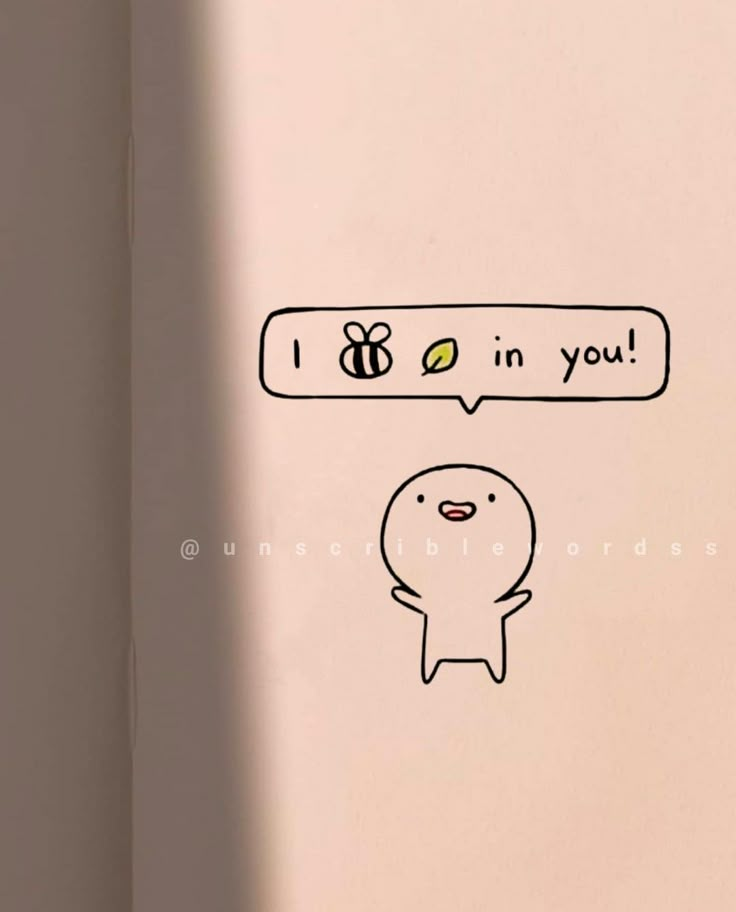 I in you!
@unscriblewordss